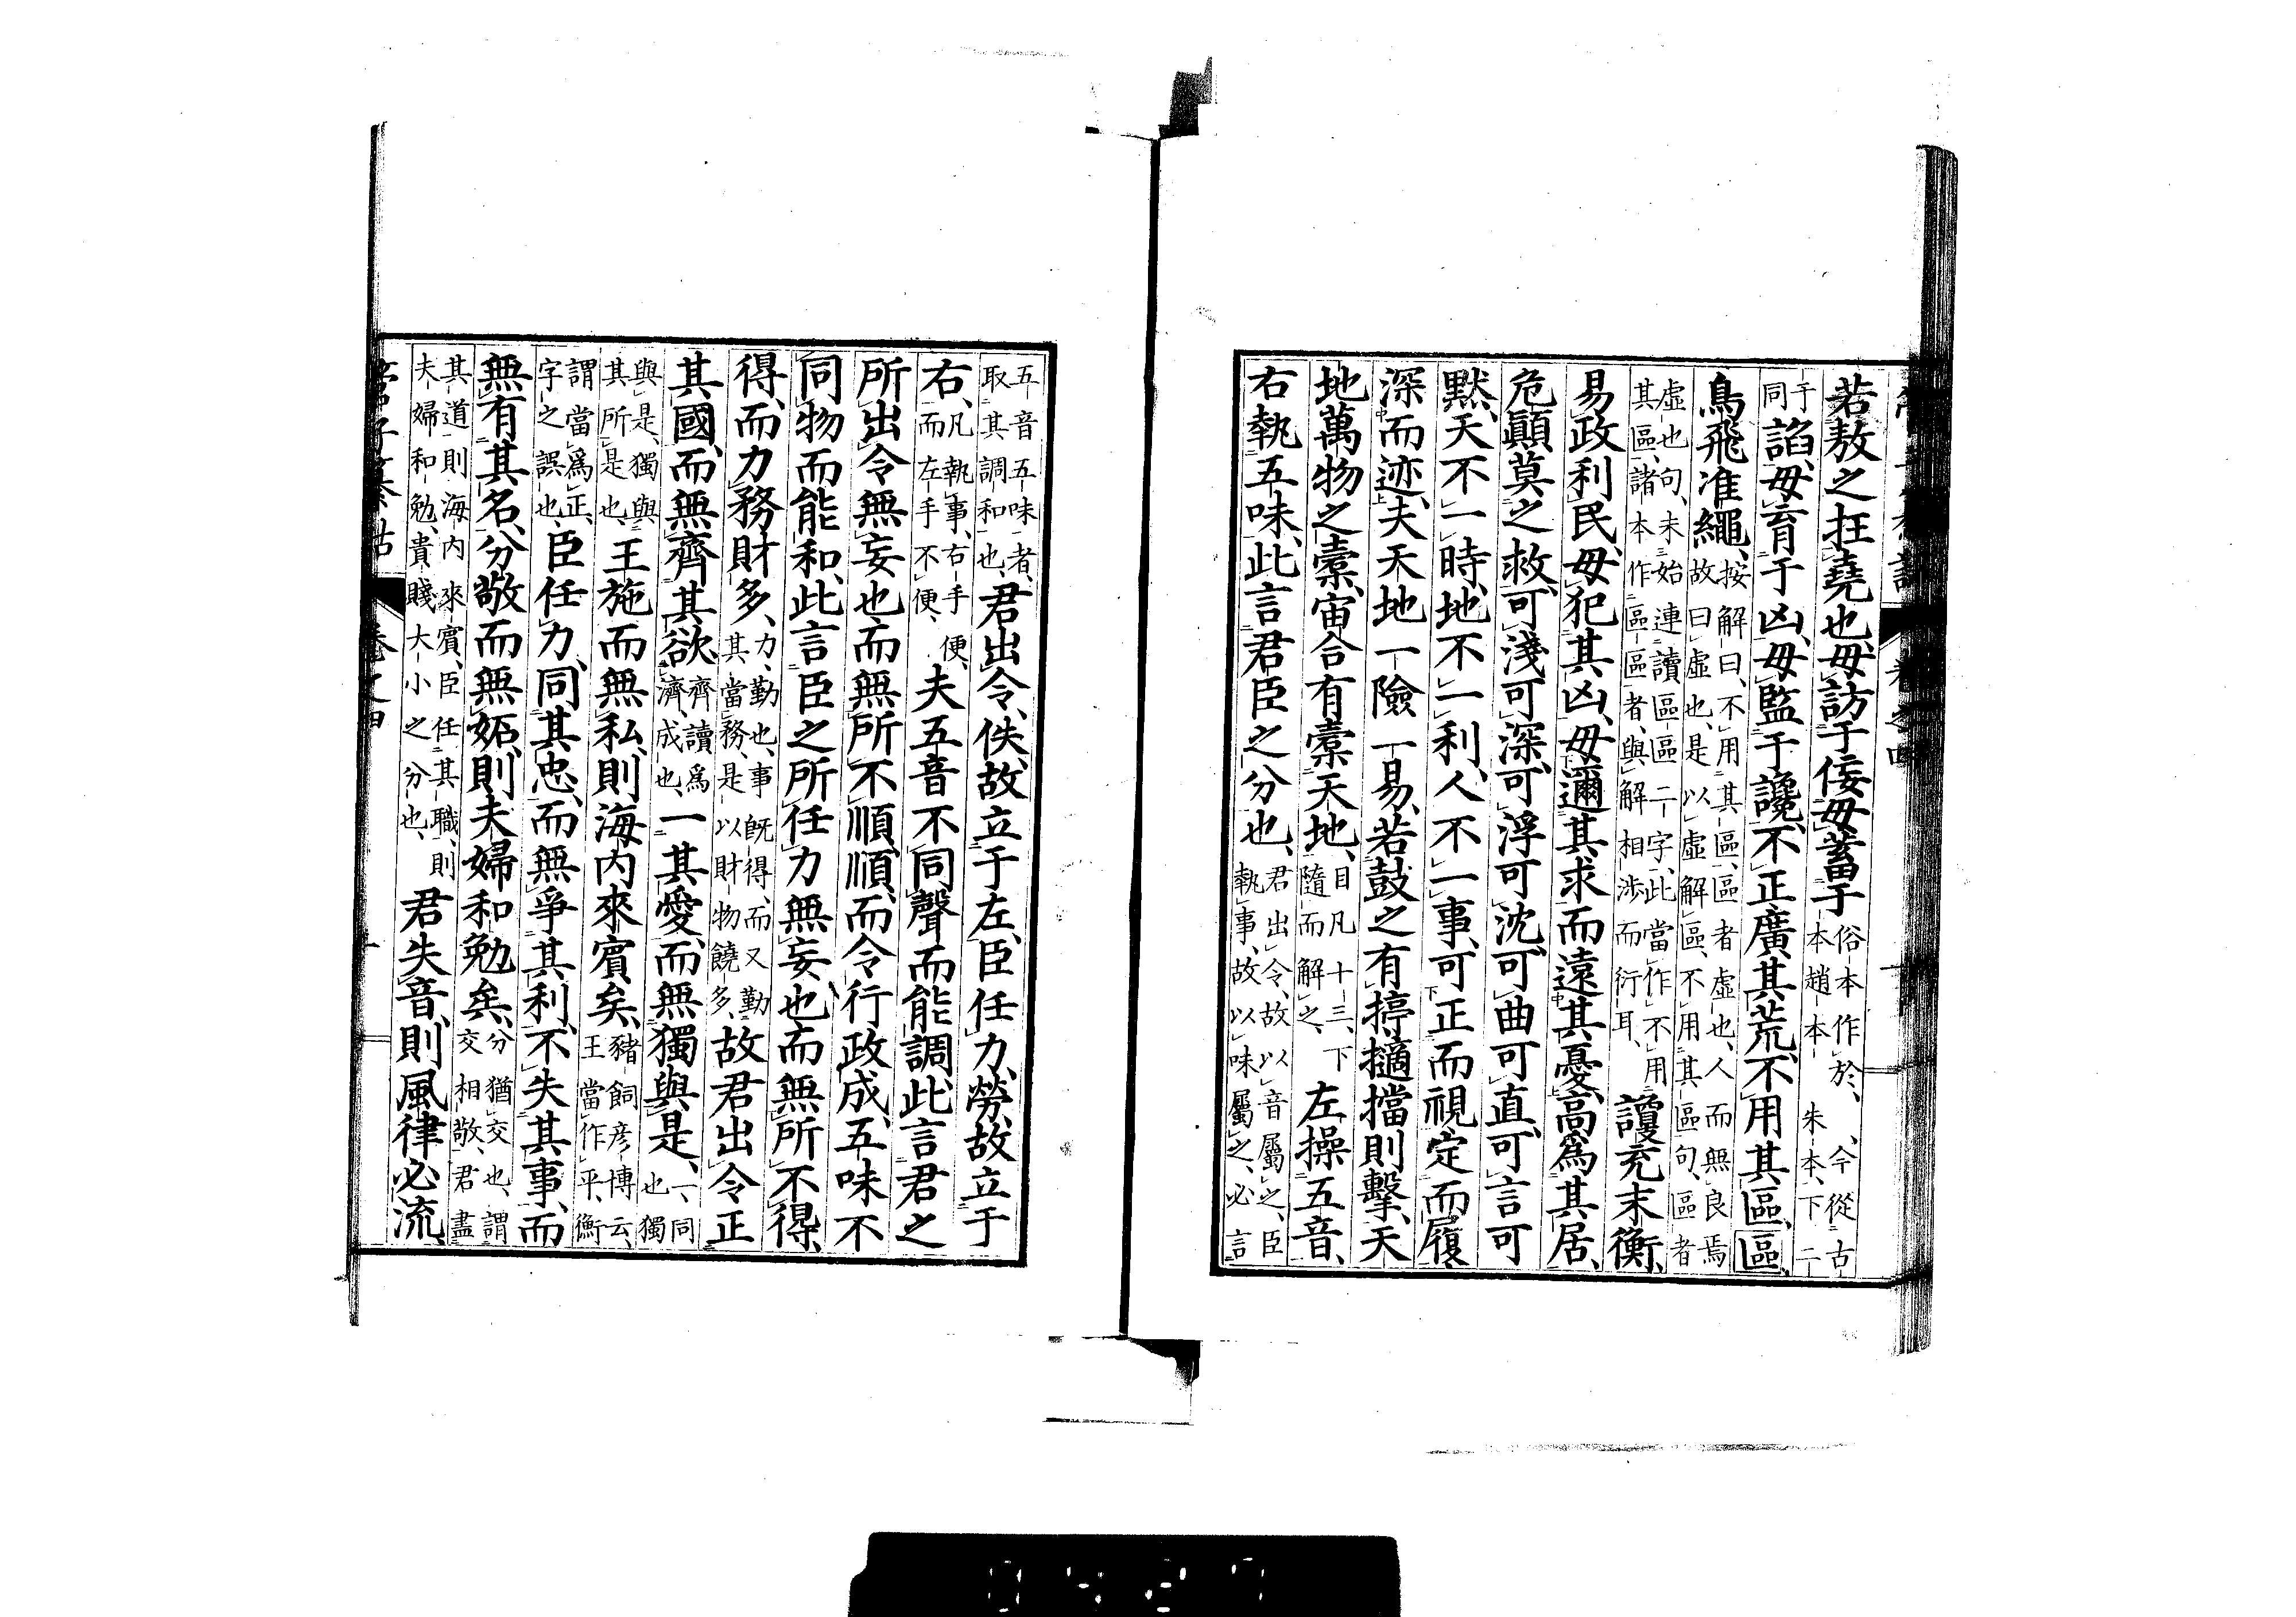 若敖之在堯也、毋訪于佞、毋蓄于俗本作於、今從古本趙本朱本、下二
于同諂、毋育于凶、毋監于讒、不正廣其荒、不用其區、區
鳥飛准繩、按解曰、不用其區、區者虛也、人而無良焉故曰虛也、是以虛解區、不用其區句、區者
虛也句、未始連讀區區二字、此當作不用其區、諸本作區區者、與解相涉而衍耳、讂充末衡、
易政利民、毋犯其凶、毋邇其求、而遠其憂、高為其居、
危顚莫之救、可淺可深、可浮可沈、可曲可直、可言可
默、天不一時、地不一利、人不一事、可正而視、定而履、
深而迹、夫天地一險一易、若鼓之有𢱤擿擋則擊、天
地萬物之橐、宙合有橐天地、目凡十三、下隨而解之、左操五音、
右執五味、此言君臣之分也、君出令、故以音屬之、臣執事、故以味屬之、必言
五音五味者、取其調和也、君出令佚、故立于左、臣任力勞、故立于
右、凡執事、右手便、而左手不便、夫五音不同聲而能調、此言君之
所出令無妄也、而無所不順、順而令行政成、五味不
同物而能和、此言臣之所任力無妄也、而無所不得、
得而力務財多、力、勤也、事既得、而又勤其當務、是以財物饒多、故君出令正
其國、而無齊其欲、齊讀為濟、成也、一其愛、而無獨與是、一、同也、獨
與是、獨與其所是也、王施而無私、則海內來賓矣、豬飼彥博云、王當作平、衡
謂當爲正、字之誤也、臣任力、同其忠、而無爭其利、不失其事、而
無有其名、分敬而無妬、則夫婦和勉矣、分猶交也、謂交相敬、君盡
其道則海內來賓、臣任其職、則夫婦和勉、貴賤大小之分也、君失音、則風律必流、